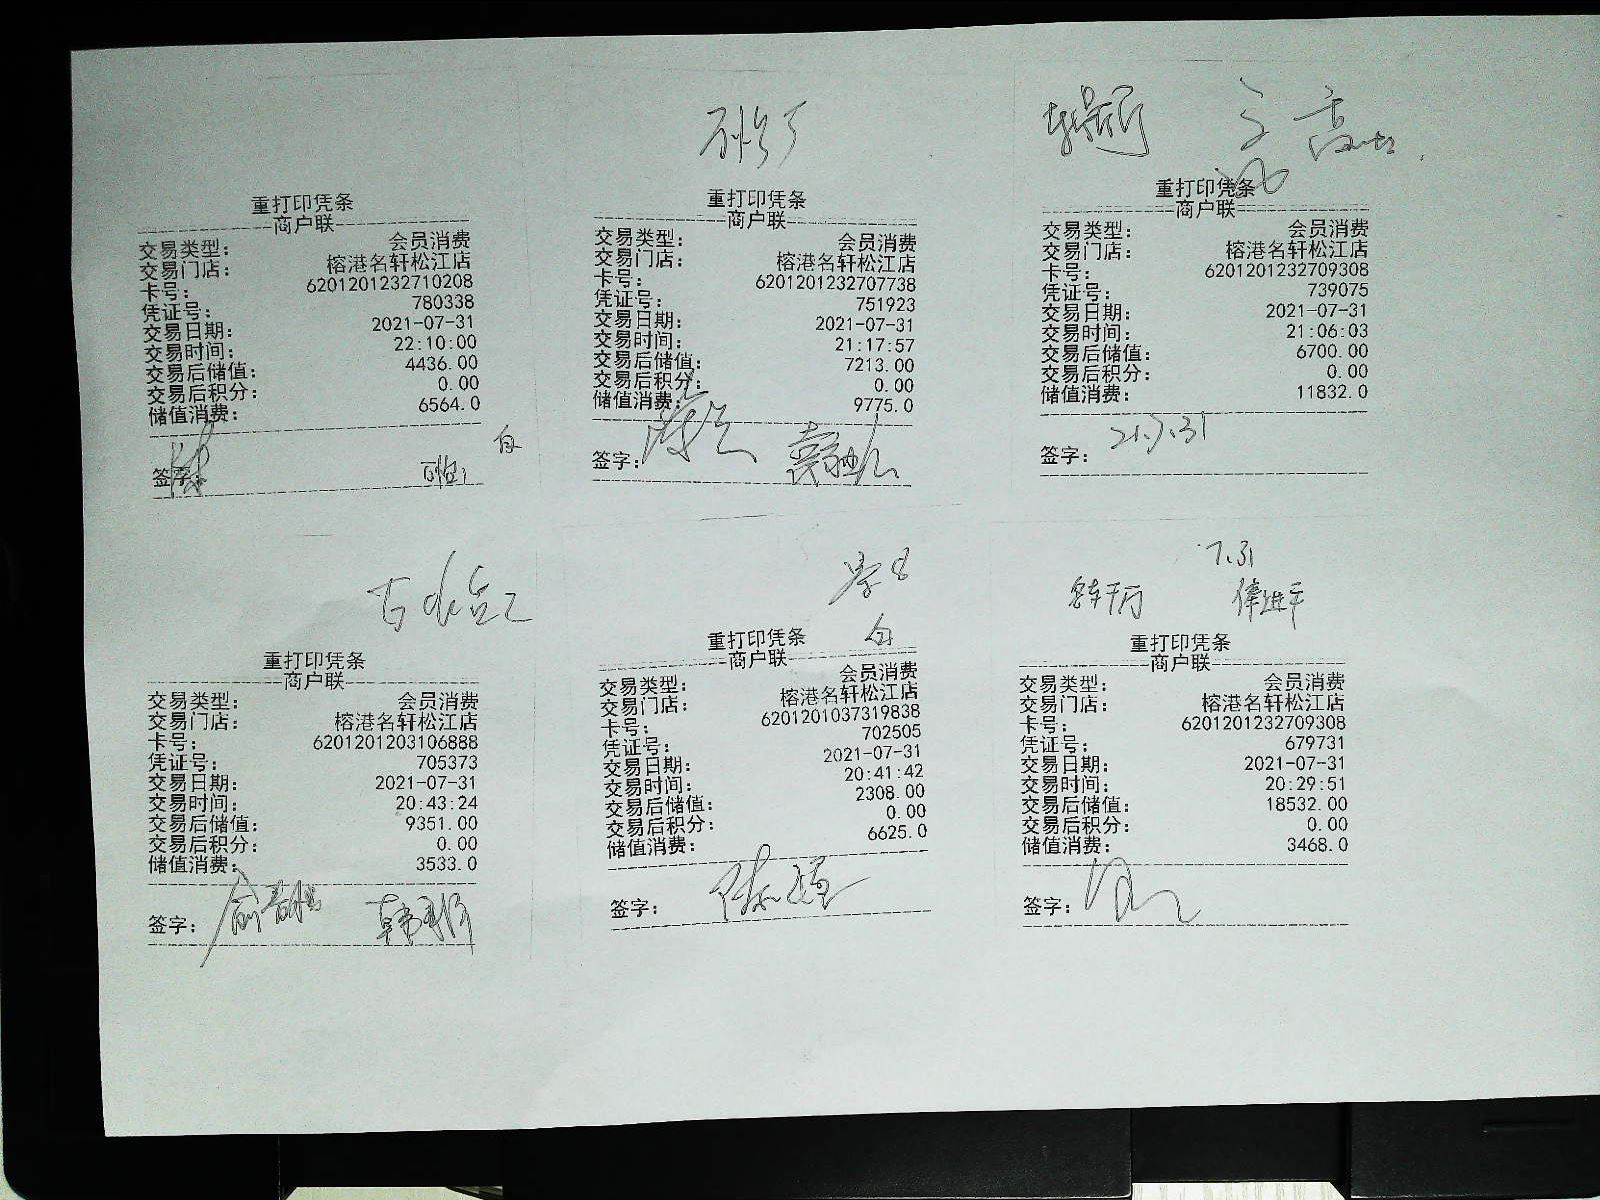 重打印凭条
商户联
交易类型： 会员消费
交易门店： 榕港名轩松江店
卡号： 6201201232710208
凭证号： 780338
交易日期： 2021-07-31
交易时间： 22:10:00
交易后储值： 4436.00
交易后积分： 0.00
储值消费： 6564.0
签字：
重打印凭条
商户联
交易类型： 会员消费
交易门店： 榕港名轩松江店
卡号： 6201201232707738
凭证号： 751923
交易日期： 2021-07-31
交易时间： 21:17:57
交易后储值： 7213.00
交易后积分： 0.00
储值消费： 9775.0
签字：
重打印凭条
商户联
交易类型： 会员消费
交易门店： 榕港名轩松江店
卡号： 6201201232709308
凭证号： 739075
交易日期： 2021-07-31
交易时间： 21:06:03
交易后储值： 6700.00
交易后积分： 0.00
储值消费： 11832.0
签字： 21.7.31
重打印凭条
商户联
交易类型： 会员消费
交易门店： 榕港名轩松江店
卡号： 6201201203106888
凭证号： 705373
交易日期： 2021-07-31
交易时间： 20:43:24
交易后储值： 9351.00
交易后积分： 0.00
储值消费： 3533.0
签字：
重打印凭条
商户联
交易类型： 会员消费
交易门店： 榕港名轩松江店
卡号： 6201201037319838
凭证号： 702505
交易日期： 2021-07-31
交易时间： 20:41:42
交易后储值： 2308.00
交易后积分： 0.00
储值消费： 6625.0
签字：
7.31
重打印凭条
商户联
交易类型： 会员消费
交易门店： 榕港名轩松江店
卡号： 6201201232709308
凭证号： 679731
交易日期： 2021-07-31
交易时间： 20:29:51
交易后储值： 18532.00
交易后积分： 0.00
储值消费： 3468.0
签字：